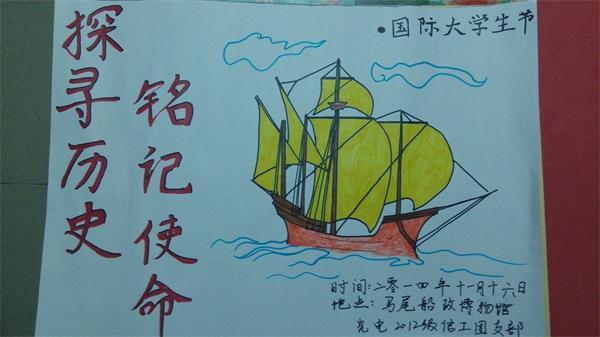 探寻历史
铭记使命
•国际大学生节
时间:二零一四年十一月十六日
地点:马尾船政博物馆
光电2012级信工团支部